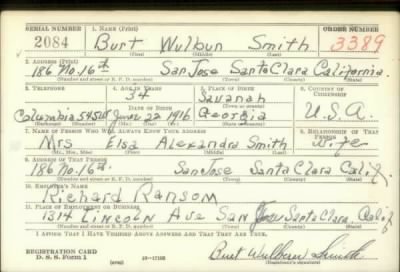 SERIAL NUMBER 1. NAME (Print) ORDER NUMBER
2084 Burt Wulbun Smith 3389
(First) (Middle) (Last)
2. ADDRESS (Print)
186 No. 16th San Jose Santa Clara California.
(Number and street or R. F. D. number) (Town) (County) (State)
3. TELEPHONE 4. AGE IN YEARS 5. PLACE OF BIRTH 6. COUNTRY OF CITIZENSHIP
34 Savanah
DATE OF BIRTH (Town or county)
Columbia 5454W June 22 1916 Georgia U.S.A.
(Exchange) (Number) (Mo.) (Day) (Yr.) (State or country)
7. NAME OF PERSON WHO WILL ALWAYS KNOW YOUR ADDRESS 8. RELATIONSHIP OF THAT PERSON
Mrs Elsa Alexandra Smith Wife
(Mr., Mrs., Miss) (First) (Middle) (Last)
9. ADDRESS OF THAT PERSON
186 No. 16th. San Jose Santa Clara Calif.
(Number and street or R. F. D. number) (Town) (County) (State)
10. EMPLOYER'S NAME
Richard Ransom
11. PLACE OF EMPLOYMENT OR BUSINESS
1314 Lincoln Ave San Jose Santa Clara, Calif
(Number and street or R. F. D. number) (Town) (County) (State)
I AFFIRM THAT I HAVE VERIFIED ABOVE ANSWERS AND THAT THEY ARE TRUE.
REGISTRATION CARD
D. S. S. Form 1 (over) Burt Wulburn Smith
(Registrant's signature)